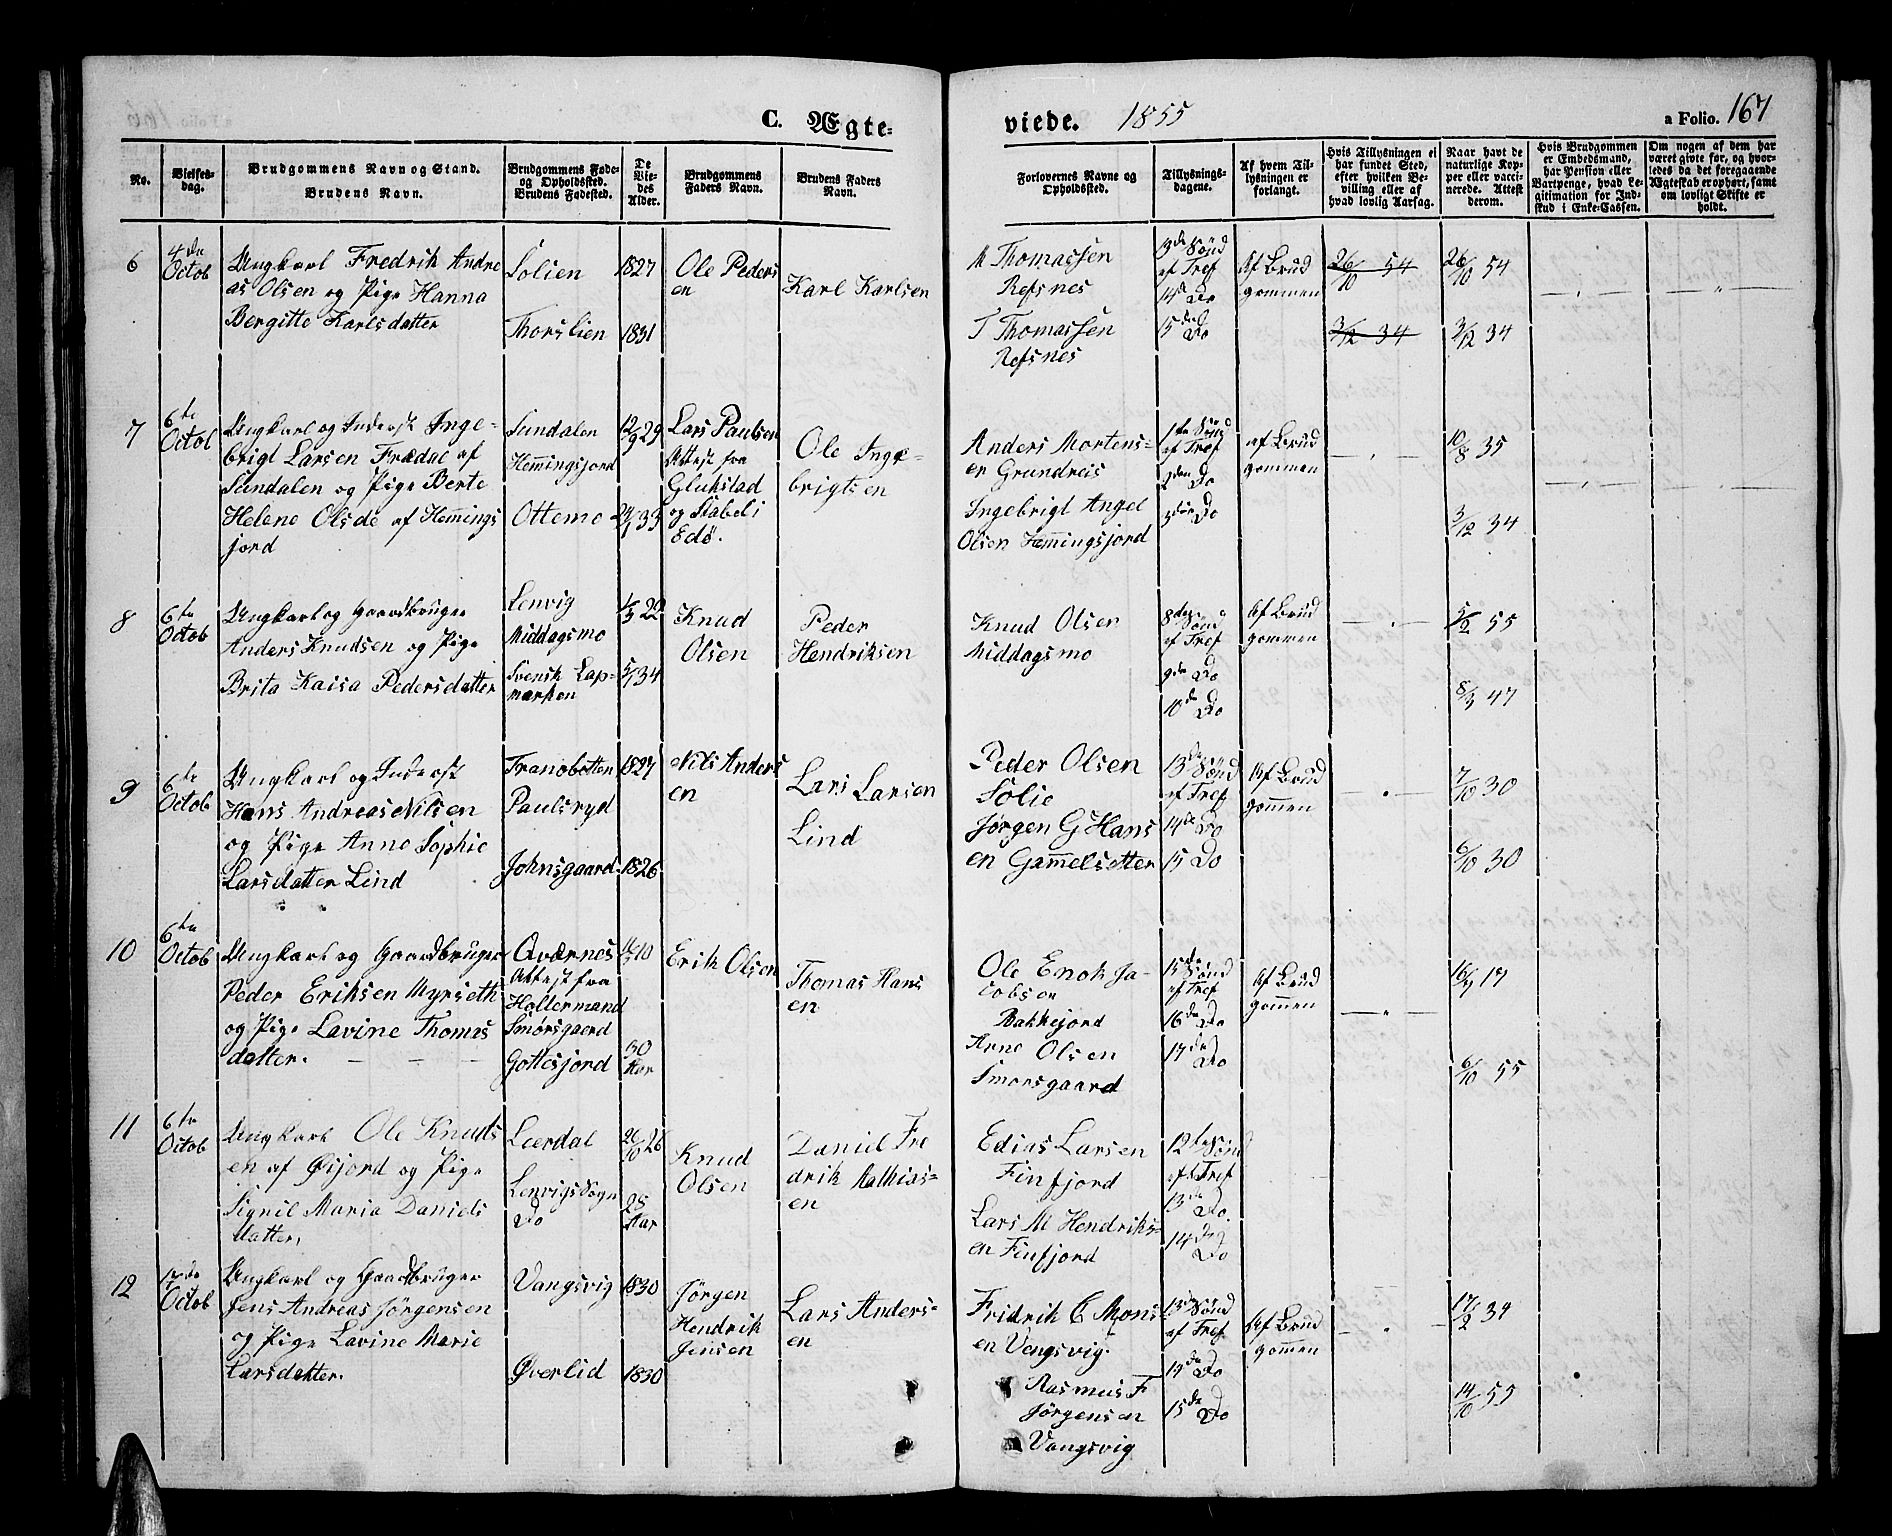 C. Ægte-
viede. 1855
a Folio. 167
No.
Vielses-
dag.
Brudgommens Navn og Stand.
Brudens Navn.
Brudgommens Føde-
og Opholdssted.
Brudens Fødested.
De
Vie-
des
Alder.
Brudgommens
Faders Navn.
Brudens Faders
Navn.
Forlovernes Navne og
Opholdssted.
Tillysnings-
dagene.
Af hvem Til-
lysningen er
forlangt.
Hvis Tillysningen ei
har fundet Sted,
efter hvilken Be-
villing eller af
hvad lovlig Aarsag.
Naar havt de
naturlige Kop-
per eller vacci-
nerede. Attest
derom.
Hvis Brudgommen
er Embedsmand,
har Pension eller
Vartpenge, hvad Le-
gitimation for Ind-
skud i Enke-Cassen.
Om nogen af dem har
været givte før, og hvor-
ledes da det foregaaende
Ægteskab er ophørt, samt
om lovligt Skifte er
holdt.
6
4de
Octob
Ungkarl Fredrik Andre
as Olsen og Pige Hanna
Bergitte Karlsdatter
Solien
Thorslien
1827
1831
Ole Peders
en
Karl Karlsen
M Thomassen
Refsnes
T Thomassen
Refsnes
13de Sønd
af Tref
14de Do
15de Do
Af Brud
gommen
26/10 54
3/12 34
26/10 54
3/12 34
7
6te
Octob
Ungkarl og Inderst Inge-
brigt Larsen Frædal af
Sundalen og Pige Berte
Helene Olsdt af Hemmings
jord
Sundalen
Hemmingsjord
Ottemo
12/9 29
24/1 33
Lars Paulsen
Attest fra
Glukstad
og Stabel i
Edø.
Ole Inge-
brigtsen
Anders Mortens-
en Grundreis
Ingebrigt Angel
Olsen Hemmingsjord
1ste Sønd
af Tref
2den Do
3die Do
af Brud
gommen
10/8 35
3/12 34
8
6te
Octob
Ungkarl og Gaardbruger
Anders Knudsen og Pige
Brita Kaisa Pedersdatter
Lenvig
Middagsmo
Svensk Lap-
marken
1/3 22
5/7 34
Knud
Olsen
Peder
Hendriksen
Knud Olsen
Middagsmo
8de Sønd
af Tref
9de Do
10de Do
Af Brud
gommen
5/2 55
8/3 47
9
6te
Octob
Ungkarl og Inderst
Hans Andreas Nilsen
og Pige Anne Sophie
Larsdatter Lind
Tranobotten
Paulsryd
Johnsgaard
1827
1826
Nils Anders
en
Lars Larsen
Lind
Peder Olsen
Solie
Jørgen G Hans
en Gammelsetter
13de Sønd
af Tref
14de Do
15 Do
Af Brud
gommen
7/10 30
6/10 30
10
6te
Octob
Ungkarl og Gaardbruger
Peder Eriksen Myrseth
og Pige Lavine Thomas
datter.
Qværnes
Attest fra
Haltermand
Smørsgaard
Gottesjord
11/5 10
30
Aar
Erik Olsen
Thomas Hans
en
Ole Enok Ja-
cobsen
Bakkejord
Arne Olsen
Smorsgaard
15de Sønd
af Tref
16de Do
17de Do
Af Brud
gommen
16/9 17
6/10 55
11
6te
Octob
Ungkarl Ole Knuds
en af Øijord og Pige
Signil Maria Daniels
datter,
Leerdal
Lenvigs Sogn
Do
21/10 26
25
Aar
Knud
Olsen
Daniel Fre
drik Mathias-
en
Edias Larsen
Finfjord
Lars M Hendriks-
en Finfjord
12te Sønd
af Tref
13de Do.
14de Do
12
14de
Octob
Ungkarl og Gaardbruger
Jens Andreas Jørgensen
og Pige Lavine Marie
Larsdatter.
Vangsvig
Øverlid
1830
1830
Jørgen
Hendrik
Jensen
Lars Anders-
en
Fridrik C Mons
en Vangsvig.
Rasmus F
Jørgensen
Vangsvig
13de Sønd
af Tref
14de Do
15de Do
Af Brud
gommen
17/2 34
14/10 55